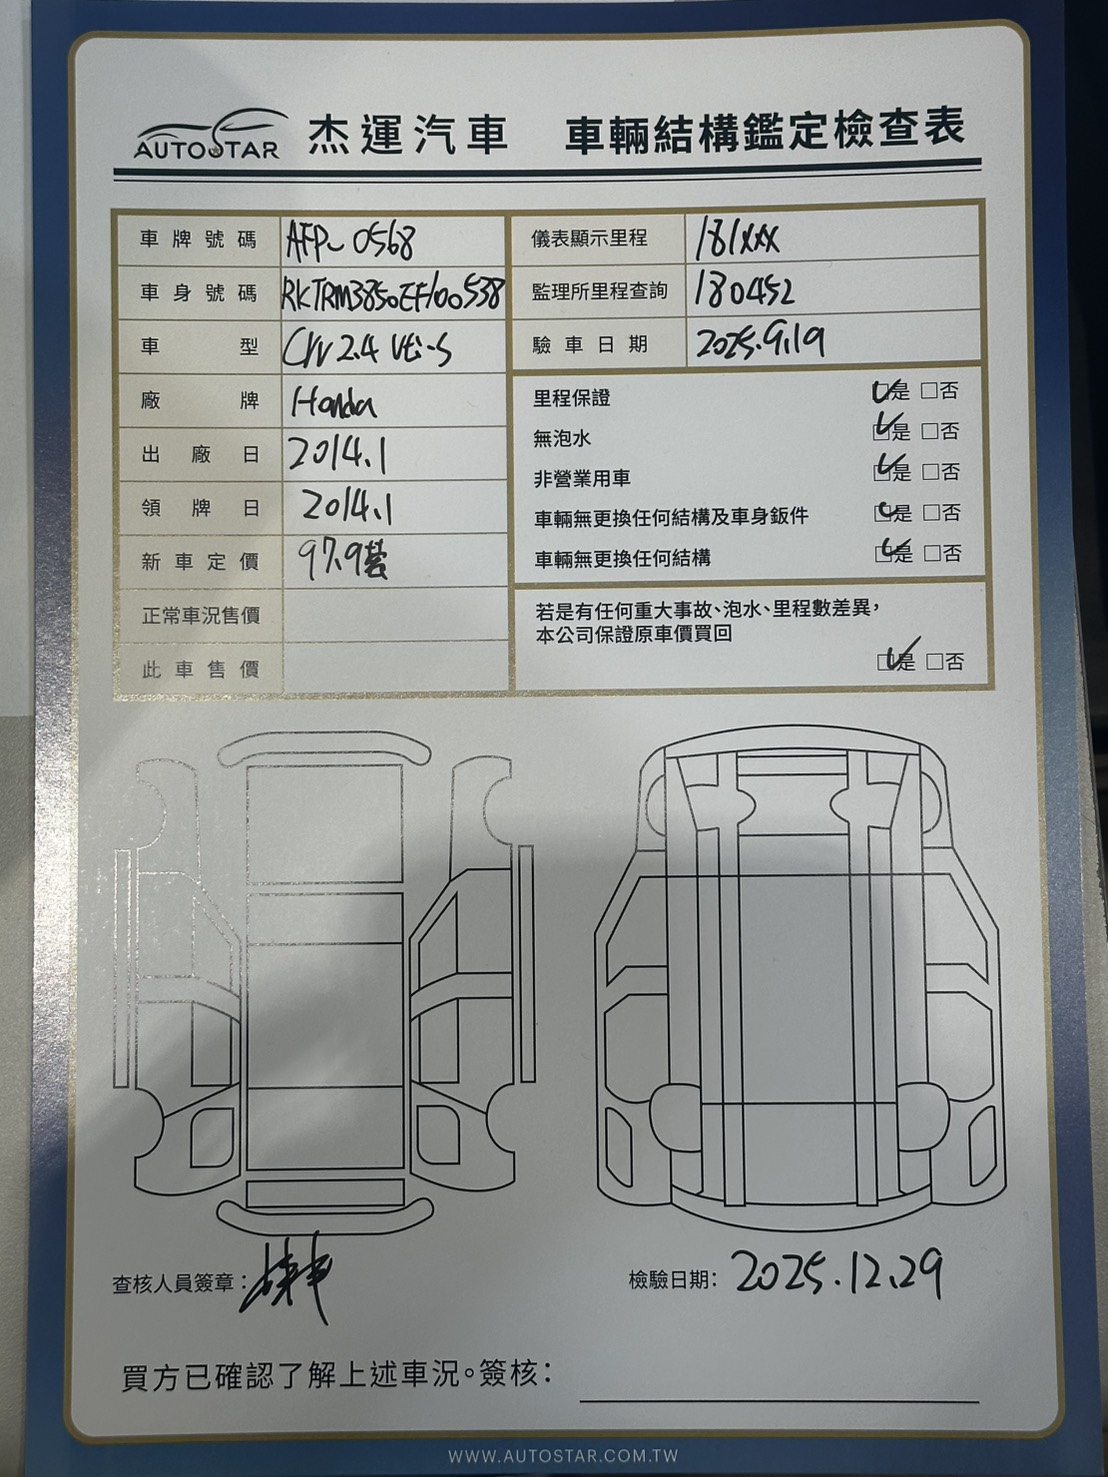 AUTOSTAR 杰運汽車 車輛結構鑑定檢查表
車牌號碼 AFP-0568
車身號碼 RKTRM3850EF100538
車型 CRV 2.4 VTi-S
廠牌 Honda
出廠日 2014.1
領牌日 2014.1
新車定價 97.9萬
正常車況售價
此車售價
儀表顯示里程 181xxx
監理所里程查詢 180452
驗車日期 2025.9.19
里程保證 ☑是 □否
無泡水 ☑是 □否
非營業用車 ☑是 □否
車輛無更換任何結構及車身鈑件 ☑是 □否
車輛無更換任何結構 ☑是 □否
若是有任何重大事故、泡水、里程數差異,
本公司保證原車價買回
☑是 □否
查核人員簽章:
檢驗日期: 2025.12.29
買方已確認了解上述車況。簽核:
WWW.AUTOSTAR.COM.TW